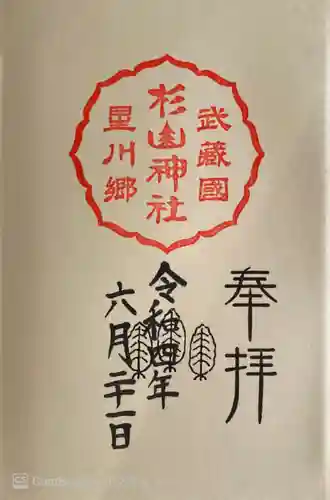 武藏國
杉山神社
星川郷
奉拝
令和四年
六月二十一日